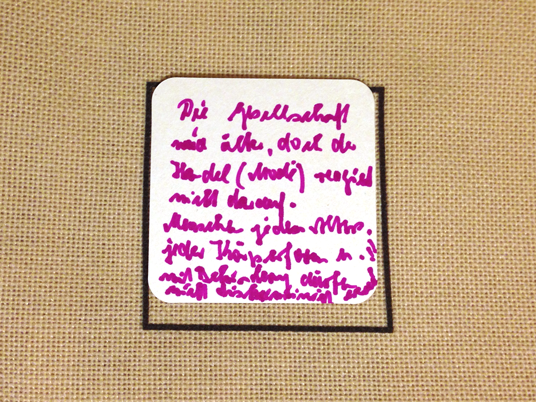 Die Gesellschaft
wird älter, doch der
Handel (Mode) reagiert
nicht darauf.
Menschen jeden Alters,
jeder Körperform u.
mit Behinderung dürfen
nicht diskriminiert